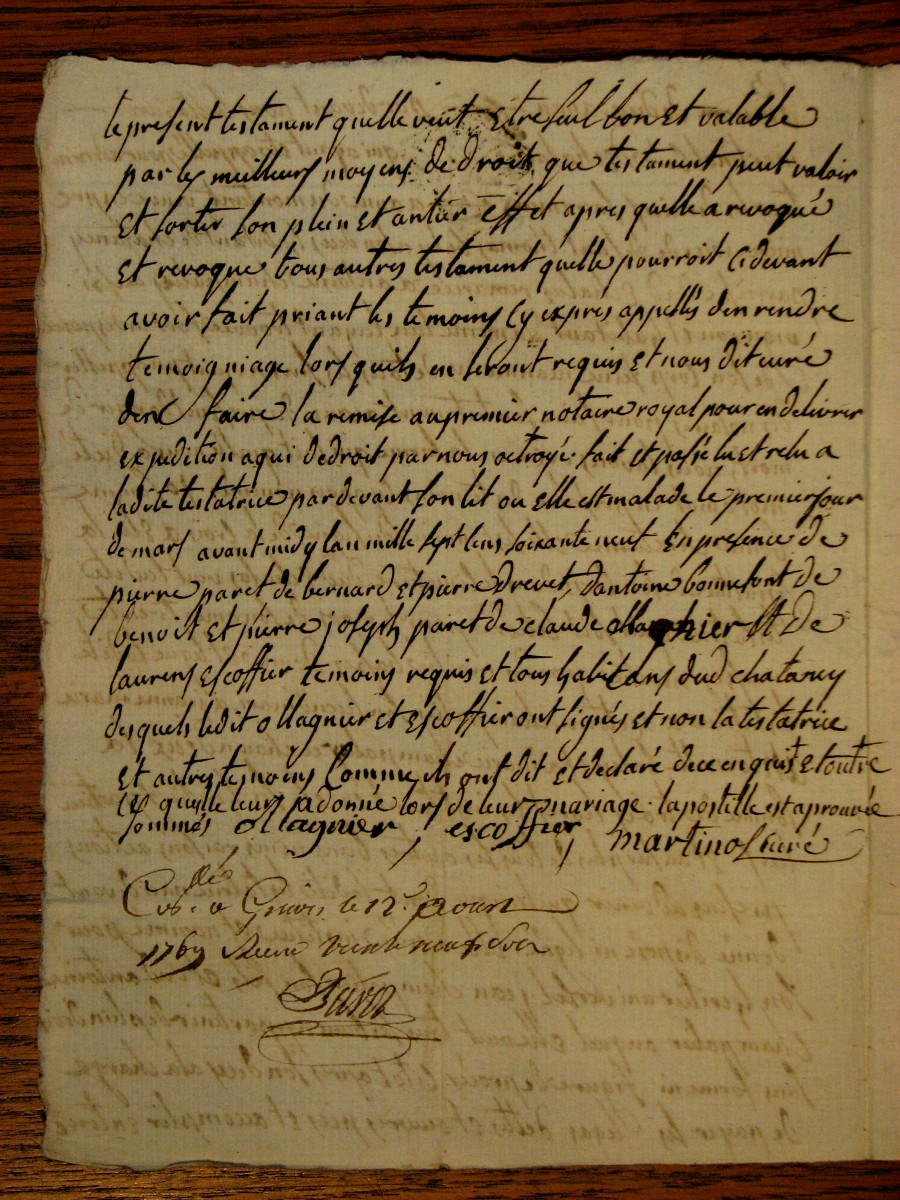 le present testament quelle veut Etre seul bon et valable
par les meilleurs moyens de droit que testament peut valoir
et sortir son plein et antier Effet apres quelle a revoqué
et revoque tous autres testament quelle pourroit cidevant
avoir fait priant les temoins cy exprés appellés den rendre
temoigniage lors quils en seront requis et nous dit curé
den faire la remise au premier notaire royal pour en delivrer
expedition a qui de droit par nous octroyé. fait et passé lu et relu a
ladite testatrice par devant son lit ou elle est malade le premier jour
de mars avant midy lan mille sept cens soixante neuf En presence de
pierre paret de bernard et pierre Drevet, dantoine bonnefont de
benoit et pierre joseph paret de claude ollagnier et de
laurens escoffier temoins requis et tous habitans dud chatanay
desquels ledit ollagnier et escoffier ont signés et non la testatrice
et autres temoins comme ils ont dit et declaré de ce enquis et outre
ce quelle leurs a donné lors de leur mariage. lapostille est aprouvée
sommés ollagnier, escoffier, martinol curé
le 12e avant
1769 vint neuf